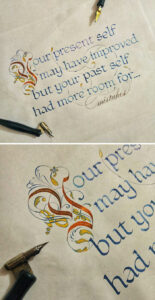 Your present self
may have improved
but your past self
had more room for...
mistakes
Your pres
may hav
but you
had m